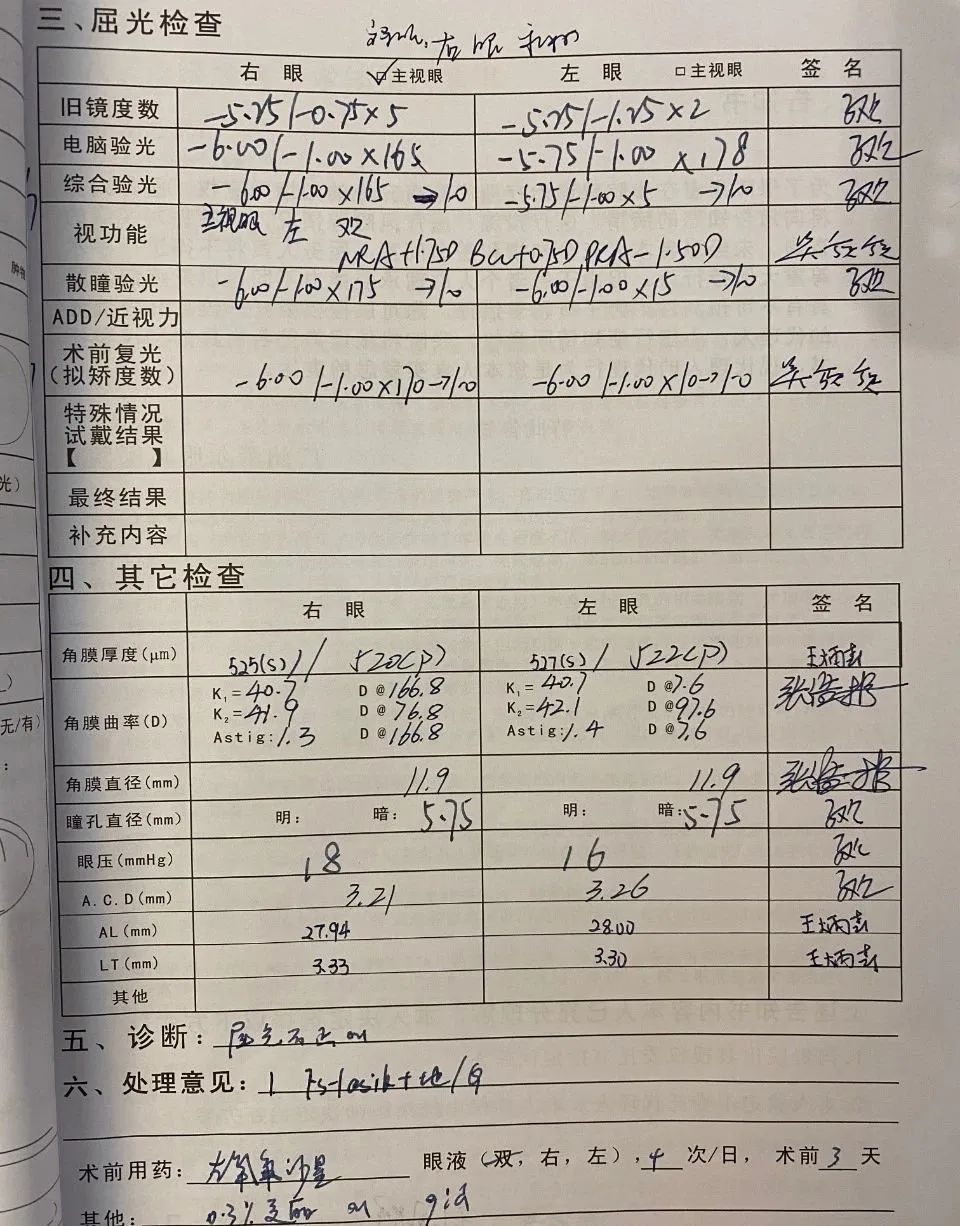 三、屈光检查
右眼 ☑主视眼 左眼 □主视眼 签名
旧镜度数 -5.25/-0.75×5 -5.25/-1.25×2
电脑验光 -6.00/-1.00×165 -5.75/-1.00×178
综合验光 -6.00/-1.00×165→1.0 -5.75/-1.00×5→1.0
主视眼 左
视功能 NRA+1.75D BCC+0.75D PRA-1.50D
散瞳验光 -6.00/-1.00×175→1.0 -6.00/-1.00×15→1.0
ADD/近视力
术前复光
(拟矫度数) -6.00/-1.00×170→1.0 -6.00/-1.00×10→1.0
特殊情况
试戴结果
【 】
最终结果
补充内容
四、其它检查
右眼 左眼 签名
角膜厚度(μm) 525(S)/ 520(P) 527(S)/ 522(P)
K₁=40.7 D@166.8 K₁=40.7 D@7.6
角膜曲率(D) K₂=41.9 D@76.8 K₂=42.1 D@97.6
Astig:1.3 D@166.8 Astig:1.4 D@7.6
角膜直径(mm) 11.9 11.9
瞳孔直径(mm) 明: 暗:5.75 明: 暗:5.75
眼压(mmHg) 18 16
A.C.D(mm) 3.21 3.26
AL(mm) 27.94 28.00
LT(mm) 3.33 3.30
其他
五、诊断:屈光不正 ou
六、处理意见:1 Fs-lasik+
术前用药:左氧氟沙星 眼液(双,右,左),4次/日,术前3天
其他: 0.3% ou